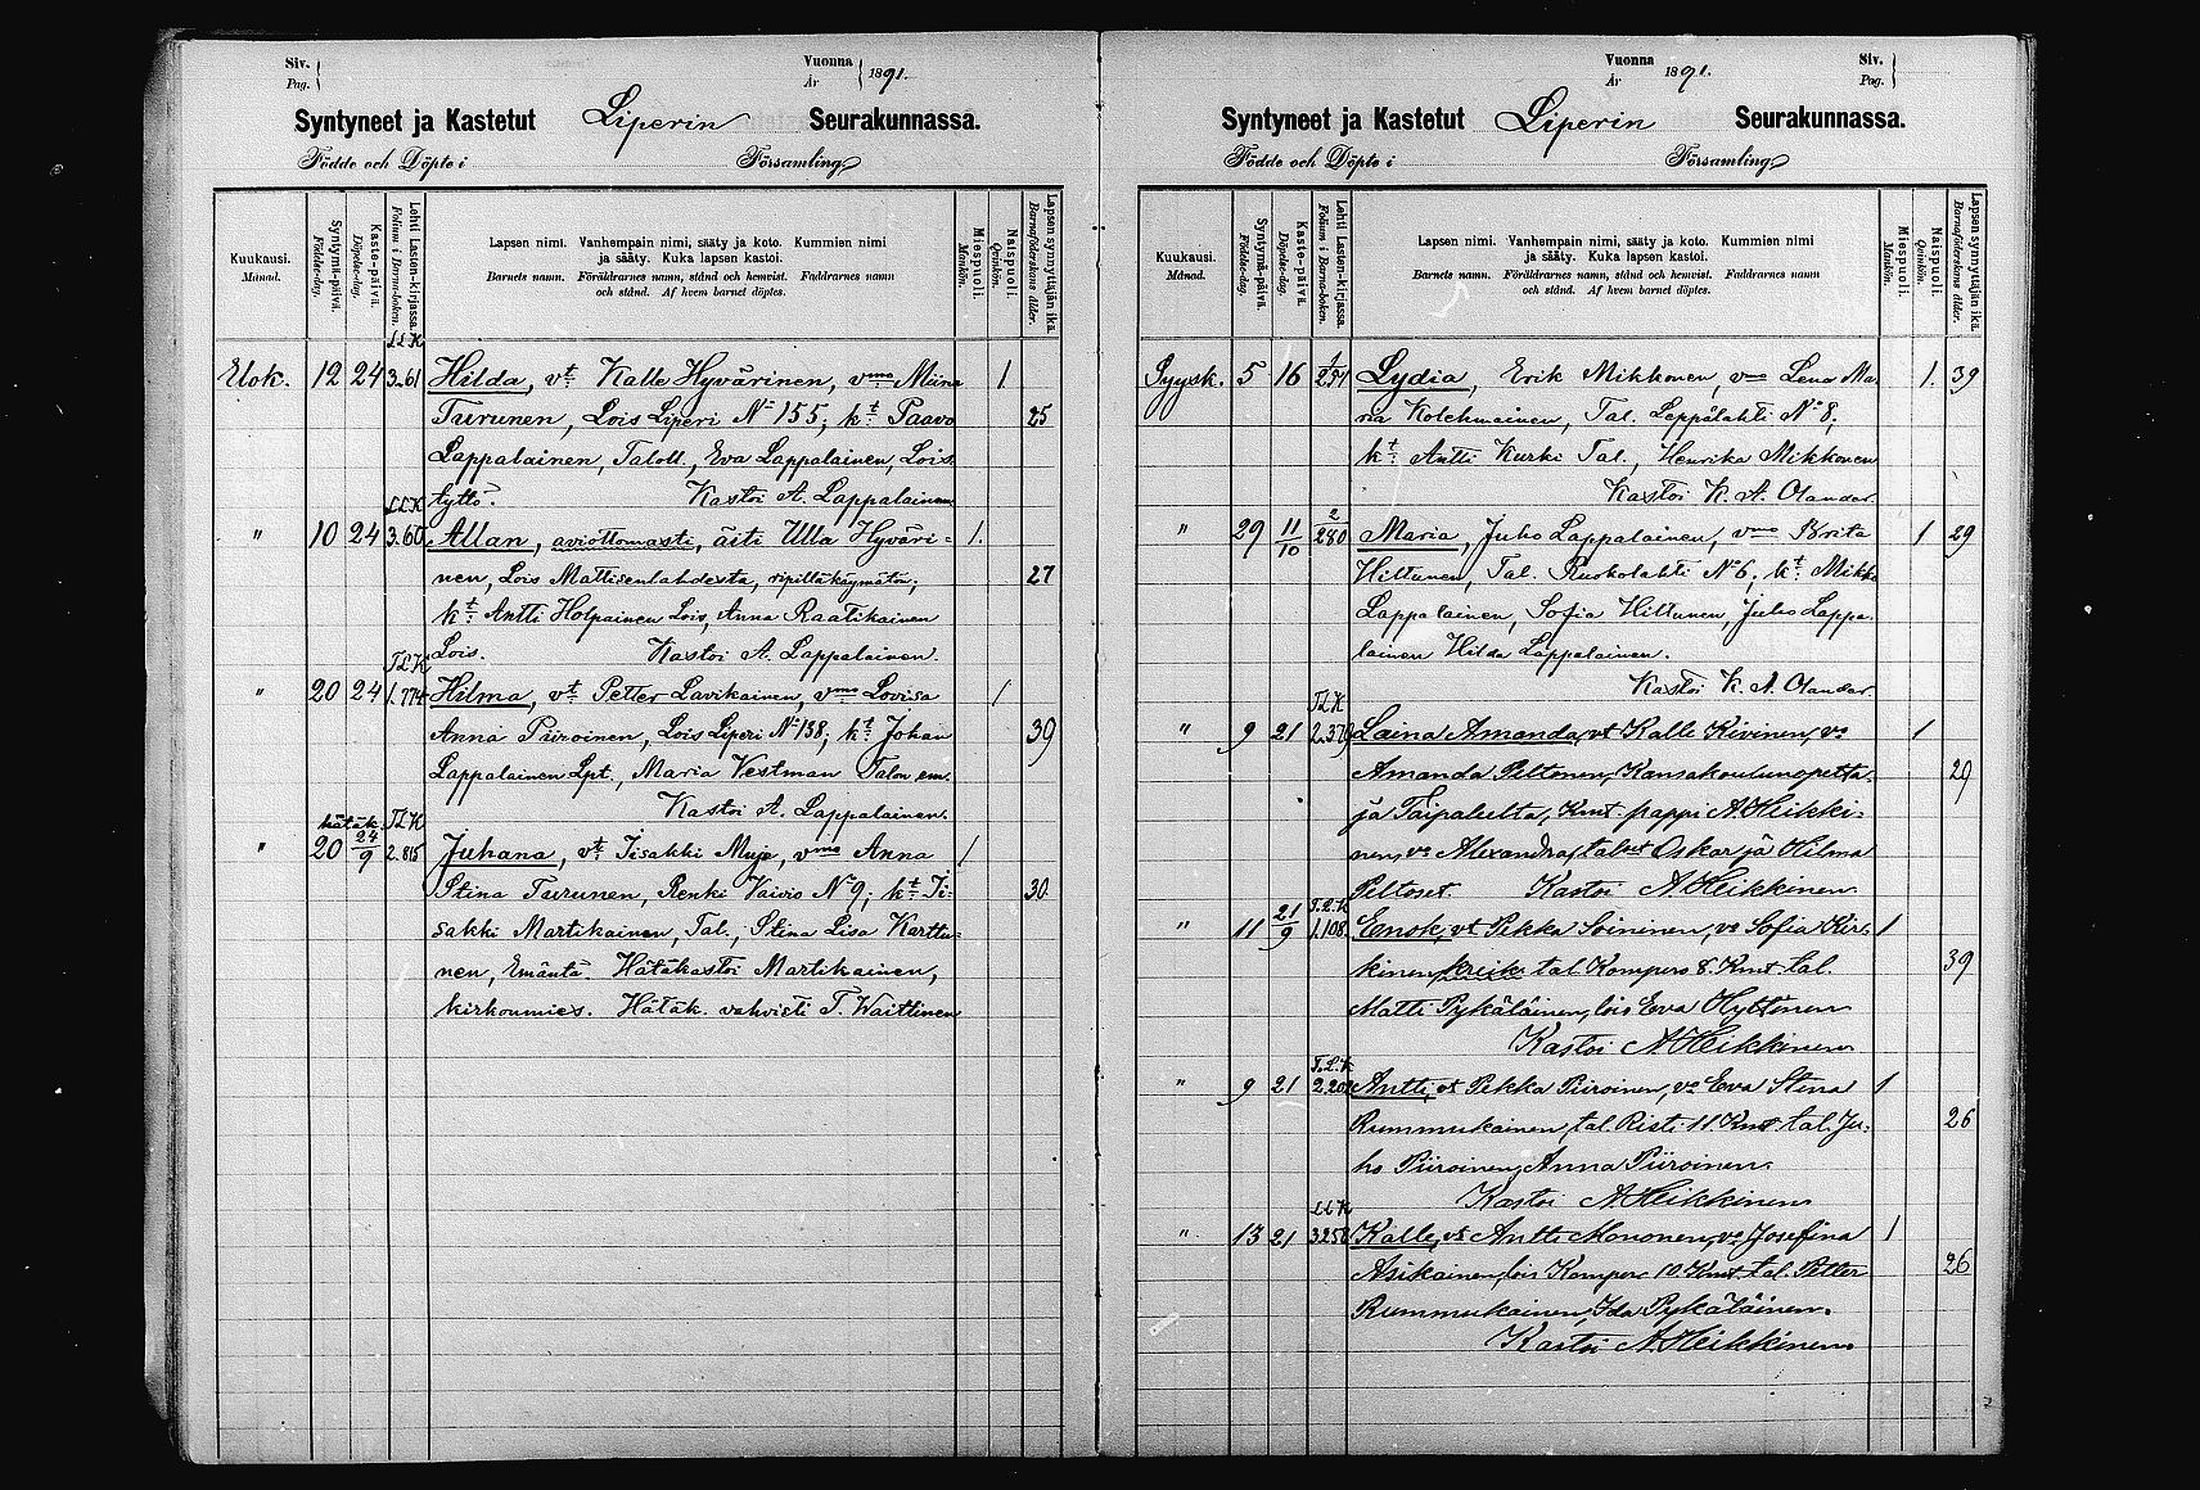 Siv.
Pag.
Vuonna
År
1891.
Syntyneet ja Kastetut Liperin Seurakunnassa.
Födde och Döpte i Församling
Kuukausi.
Månad.
Syntymä-päivä.
Födelse-dag.
Kaste-päivä.
Döpelse-dag.
Lehti Lasten-kirjassa.
Folium i Barna-boken.
Lapsen nimi. Vanhempain nimi, sääty ja koto. Kummien nimi
ja sääty. Kuka lapsen kastoi.
Barnets namn. Föräldrarnes namn, stånd och hemvist. Faddrarnes namn
och stånd. Af hvem barnet döptes.
Miespuoli.
Mankön.
Naispuoli.
Qvinkön.
Lapsen synnyttäjän ikä.
Barnaföderskans ålder.
LLK
Elok. 12 24 3.61 Hilda, vt. Kalle Hyvärinen, vmo Miina 1
Turunen, Lois Liperi No 155; kt. Paavo 25
Lappalainen, Taloll., Eva Lappalainen, Lois.
LLK tyttö. Kastoi A. Lappalainen
" 10 24 3.60 Allan, aviottomasti, äiti Ulla Hyväri= 1.
nen, Lois Mattisenlahdesta, ripilläkäymätön; 27
kt. Antti Holpainen Lois, Anna Raatikainen
TLK Lois. Kastoi A. Lappalainen.
" 20 24 1.774 Hilma, vt. Petter Lavikainen, vmo Lovisa 1
Anna Piiroinen, Lois Liperi No 138; kt. Johan 39
Lappalainen Lpt., Maria Vestman Talon em.
Kastoi A. Lappalainen.
hätäk. TLK
" 20 24/9 2.815 Juhana, vt. Iisakki Muje, vmo Anna 1
Stina Turunen, Renki Vaivio No 9; kt. Ii= 30
sakki Martikainen, Tal., Stina Lisa Karttu=
nen, Emäntä. Hätäkastoi Martikainen,
kirkonmies. Hätäk. vahvisti T. Waittinen
Vuonna
År
1891.
Siv.
Pag.
Syntyneet ja Kastetut Liperin Seurakunnassa.
Födde och Döpte i Församling
Kuukausi.
Månad.
Syntymä-päivä.
Födelse-dag.
Kaste-päivä.
Döpelse-dag.
Lehti Lasten-kirjassa.
Folium i Barna-boken.
Lapsen nimi. Vanhempain nimi, sääty ja koto. Kummien nimi
ja sääty. Kuka lapsen kastoi.
Barnets namn. Föräldrarnes namn, stånd och hemvist. Faddrarnes namn
och stånd. Af hvem barnet döptes.
Miespuoli.
Mankön.
Naispuoli.
Qvinkön.
Lapsen synnyttäjän ikä.
Barnaföderskans ålder.
Syysk. 5 16 Lydia, Erik Mikkonen, vmo Lena Ma= 1. 39
ria Kolehmainen, Tal. Leppälahti No 8;
kt. Antti Kurki Tal., Henrika Mikkonen
Kastoi K. A. Olander.
" 29 11/10 2/280 Maria, Juho Lappalainen, vmo Brita 1 29
Hiltunen, Tal. Ruokolahti No 6; kt. Mikko
Lappalainen, Sofia Hiltunen, Juho Lappa=
lainen Hilda Lappalainen.
Kastoi K. A. Olander.
TLK
" 9 21 2.379 Laina Amanda, vt Kalle Kivinen, vo 1
Amanda Peltonen, Kansakoulunopetta= 29
ja Taipaleelta, Kmt. pappi A. Heikki=
nen, vo Alexandra, talset Oskar ja Hilma
Peltoset. Kastoi A. Heikkinen
T.L.K
" 11 21/9 1.108. Enok, vt Pekka Soininen, vo Sofia Kir= 1
kinen, kreik. tal. Kompero 8. Kmt. tal. 39
Matti Pykäläinen, lois Eva Hyttinen
Kastoi A. Heikkinen
T.L.K
" 9 21 2.202 Antti, vt Pekka Piiroinen, vo Eva Stina 1
Rummukainen, tal. Risti 11. Kmt. tal. Ju= 26
ho Piiroinen, Anna Piiroinen.
Kastoi A. Heikkinen
LLK
" 13 21 3.258 Kalle, vt Antti Mononen, vo Josefina 1
Asikainen, lois Kompero 10. Kmt. tal. Petter 26
Rummukainen, Ida Pykäläinen.
Kastoi A. Heikkinen